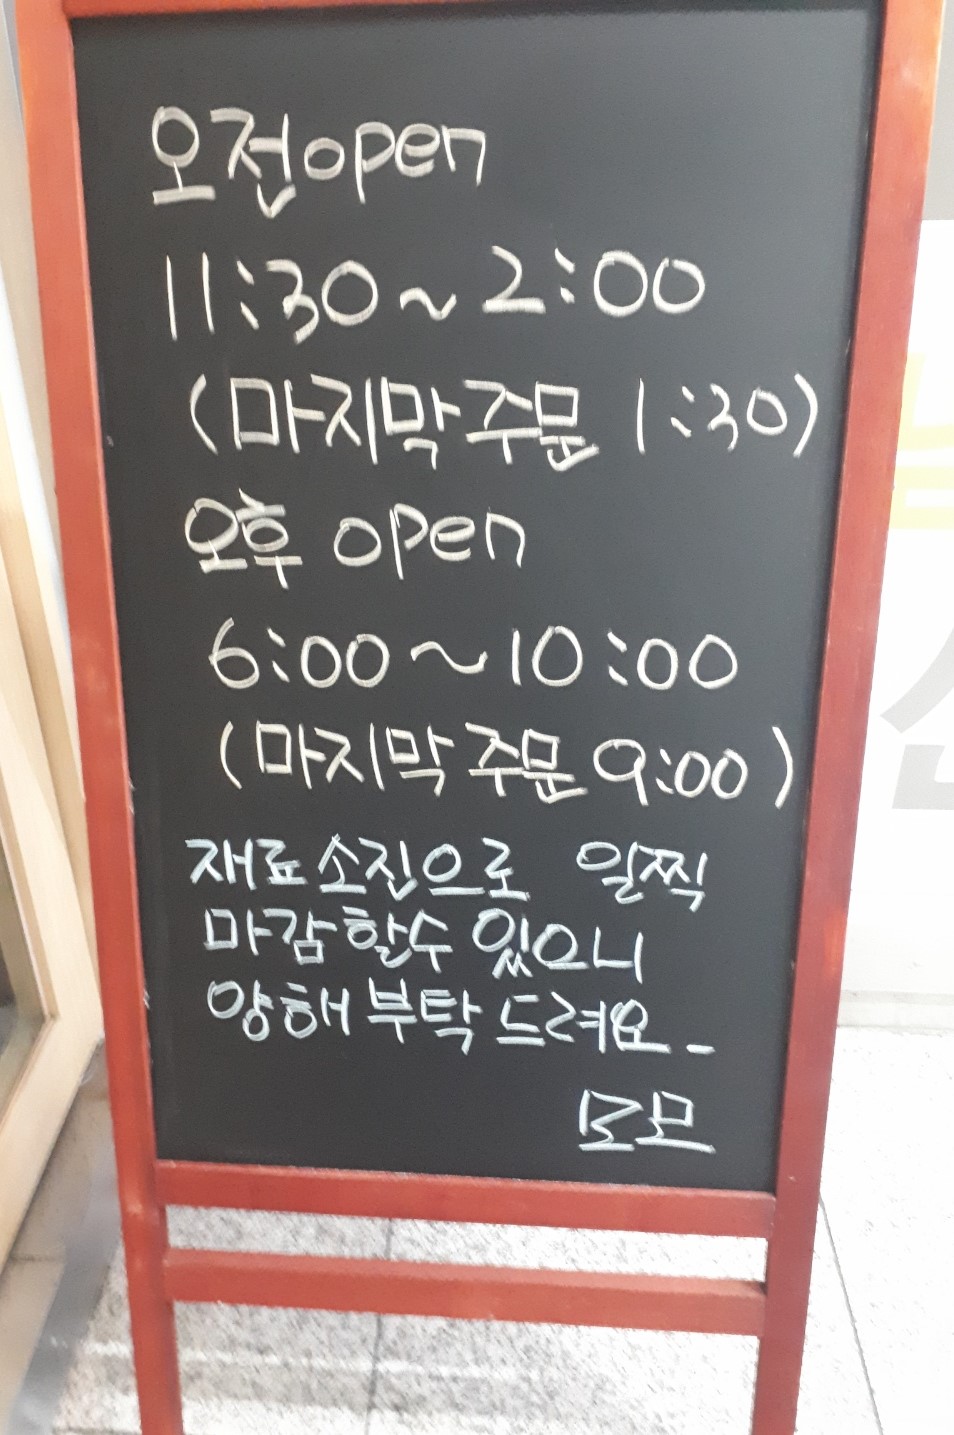 오전open
11:30~2:00
(마지막 주문 1:30)
오후 open
6:00~10:00
(마지막 주문 9:00)
재료 소진으로 일찍
마감할수 있으니
양해 부탁 드려요-
모모